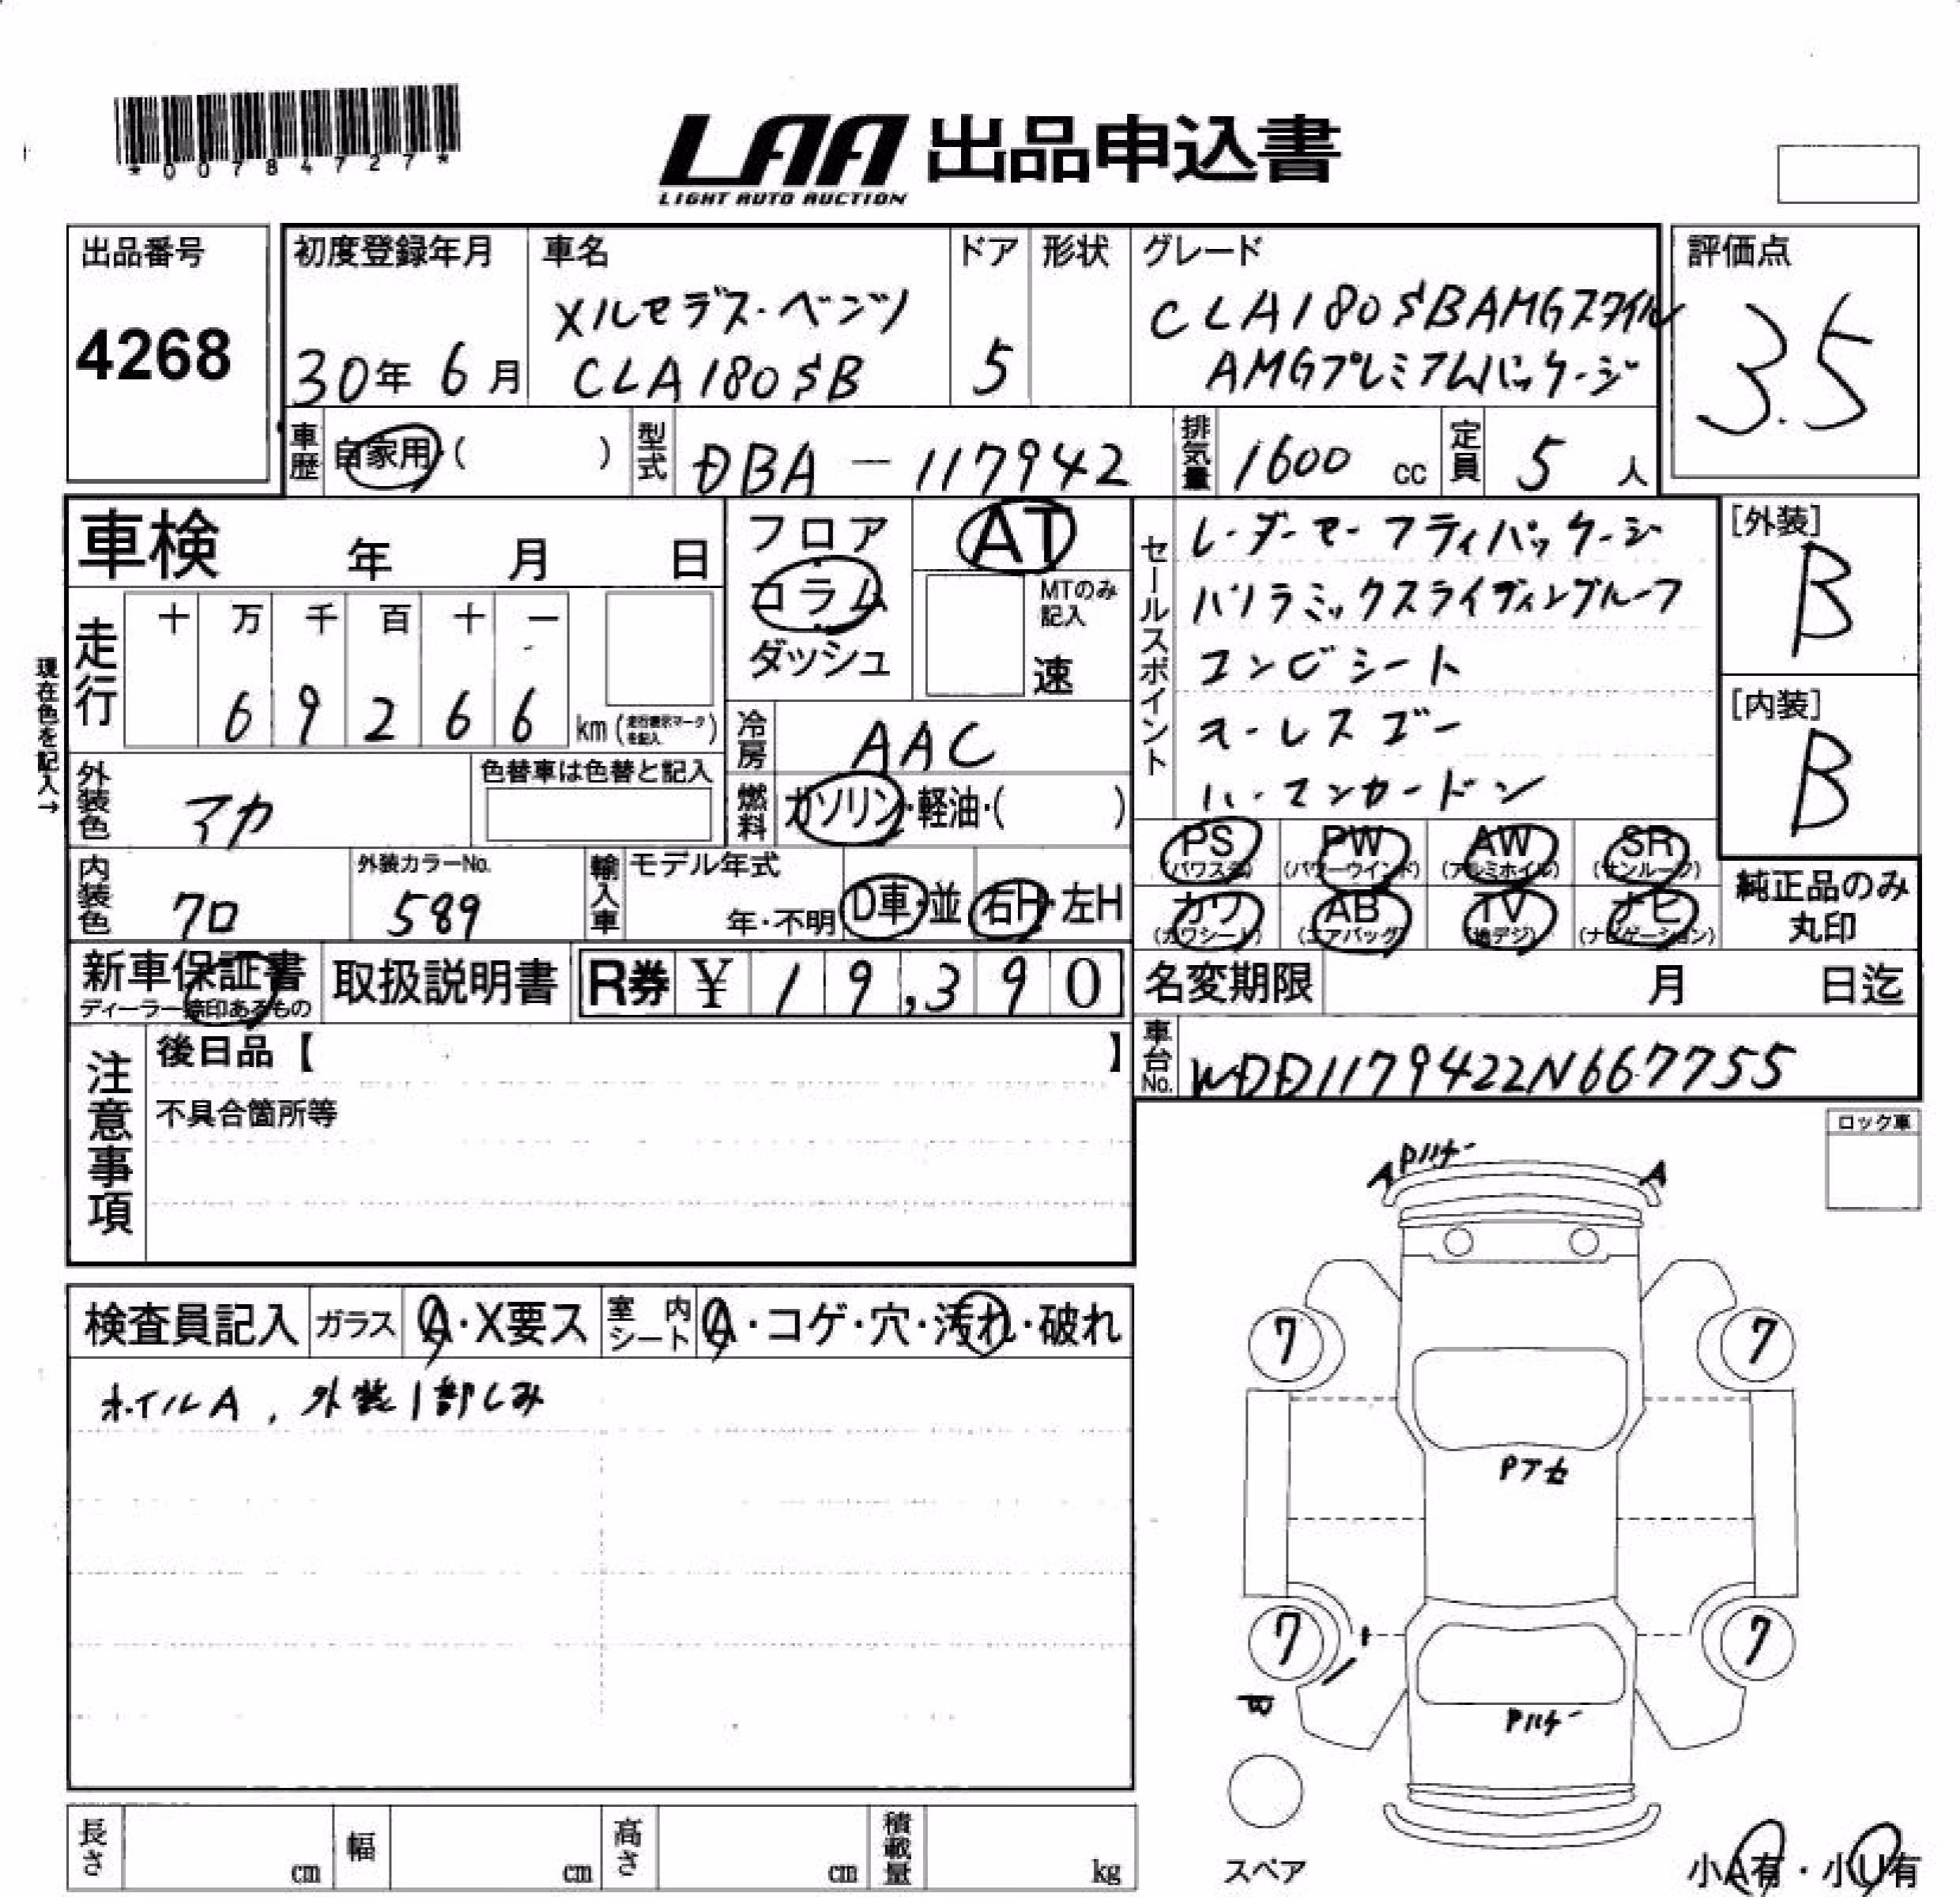 *00784727*
LAA 出品申込書
LIGHT AUTO AUCTION
出品番号
4268
初度登録年月
30年 6月
車名
メルセデス・ベンツ
CLA180SB
ドア
5
形状
グレード
CLA180SBAMGスタイル
AMGプレミアムパッケージ
評価点
3.5
車歴
自家用・( )
型式
DBA-117942
排気量
1600 cc
定員
5 人
車検 年 月 日
フロア
コラム
ダッシュ
AT
MTのみ記入
速
セールスポイント
レーダーセーフティパッケージ
パノラミックスライディングルーフ
コンビシート
キーレスゴー
ハーマンカードン
[外装]
B
[内装]
B
現在色を記入→
走行
十 万 千 百 十 一
6 9 2 6 6
km (走行表示マークを記入)
冷房
AAC
外装色
アカ
色替車は色替と記入
燃料
ガソリン・軽油・( )
内装色
クロ
外装カラーNo.
589
輸入車
モデル年式
年・不明
D車・並
右H・左H
PS (パワステ)
PW (パワーウインド)
AW (アルミホイル)
SR (サンルーフ)
カワ (カワシート)
AB (エアバッグ)
TV (地デジ)
ナビ (ナビゲーション)
純正品のみ
丸印
新車保証書
ディーラー捺印あるもの
取扱説明書
R券 ¥ 19,390
名変期限 月 日迄
車台No.
WDD1179422N667755
注意事項
後日品【 】
不具合箇所等
ロック車
Pハナー
A A
検査員記入
ガラス
A・X要ス
室内シート
A・コゲ・穴・汚れ・破れ
ホイルA, 外装1部しみ
7 7
Pアセ
7 7
Pハナー
スペア
長さ cm
幅 cm
高さ cm
積載量 kg
小A有・小U有